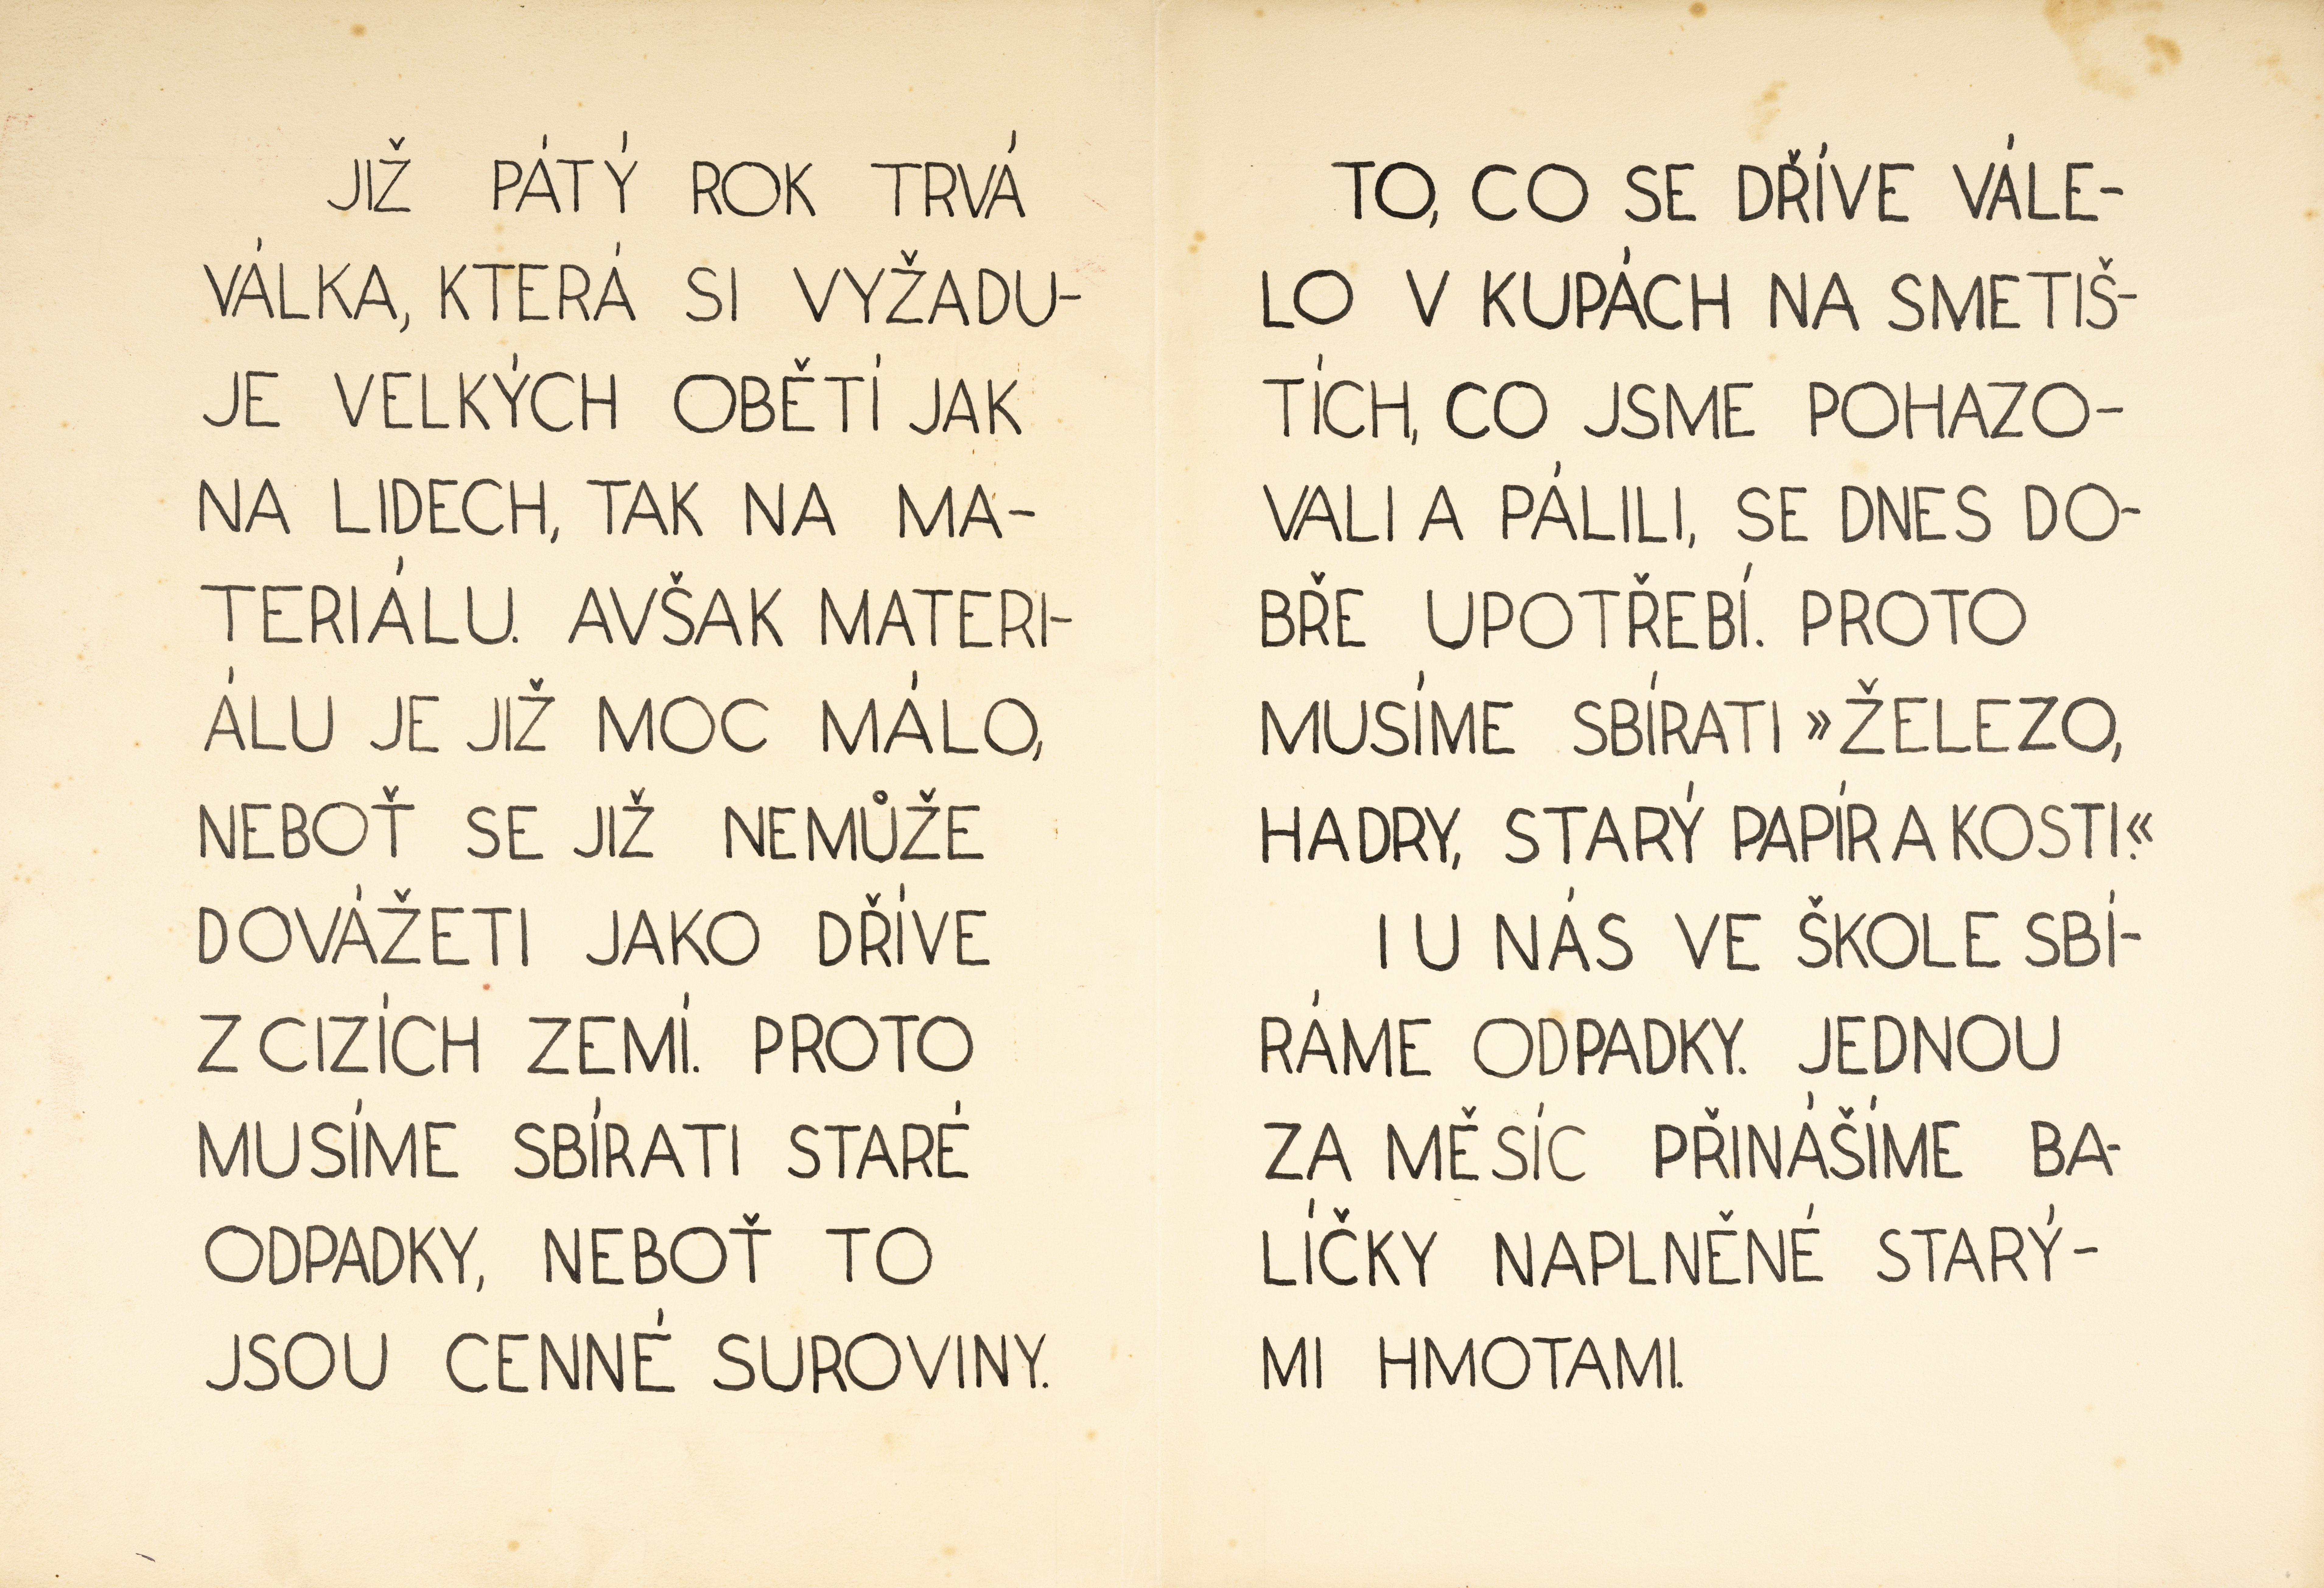 JIŽ PÁTÝ ROK TRVÁ
VÁLKA, KTERÁ SI VYŽADU-
JE VELKÝCH OBĚTÍ JAK
NA LIDECH, TAK NA MA-
TERIÁLU. AVŠAK MATERI-
ÁLU JE JIŽ MOC MÁLO,
NEBOŤ SE JIŽ NEMŮŽE
DOVÁŽETI JAKO DŘÍVE
Z CIZÍCH ZEMÍ. PROTO
MUSÍME SBÍRATI STARÉ
ODPADKY, NEBOŤ TO
JSOU CENNÉ SUROVINY.
TO, CO SE DŘÍVE VÁLE-
LO V KUPÁCH NA SMETIŠ-
TÍCH, CO JSME POHAZO-
VALI A PÁLILI, SE DNES DO-
BŘE UPOTŘEBÍ. PROTO
MUSÍME SBÍRATI »ŽELEZO,
HADRY, STARÝ PAPÍR A KOSTI.«
I U NÁS VE ŠKOLE SBÍ-
RÁME ODPADKY. JEDNOU
ZA MĚSÍC PŘINÁŠÍME BA-
LÍČKY NAPLNĚNÉ STARÝ-
MI HMOTAMI.